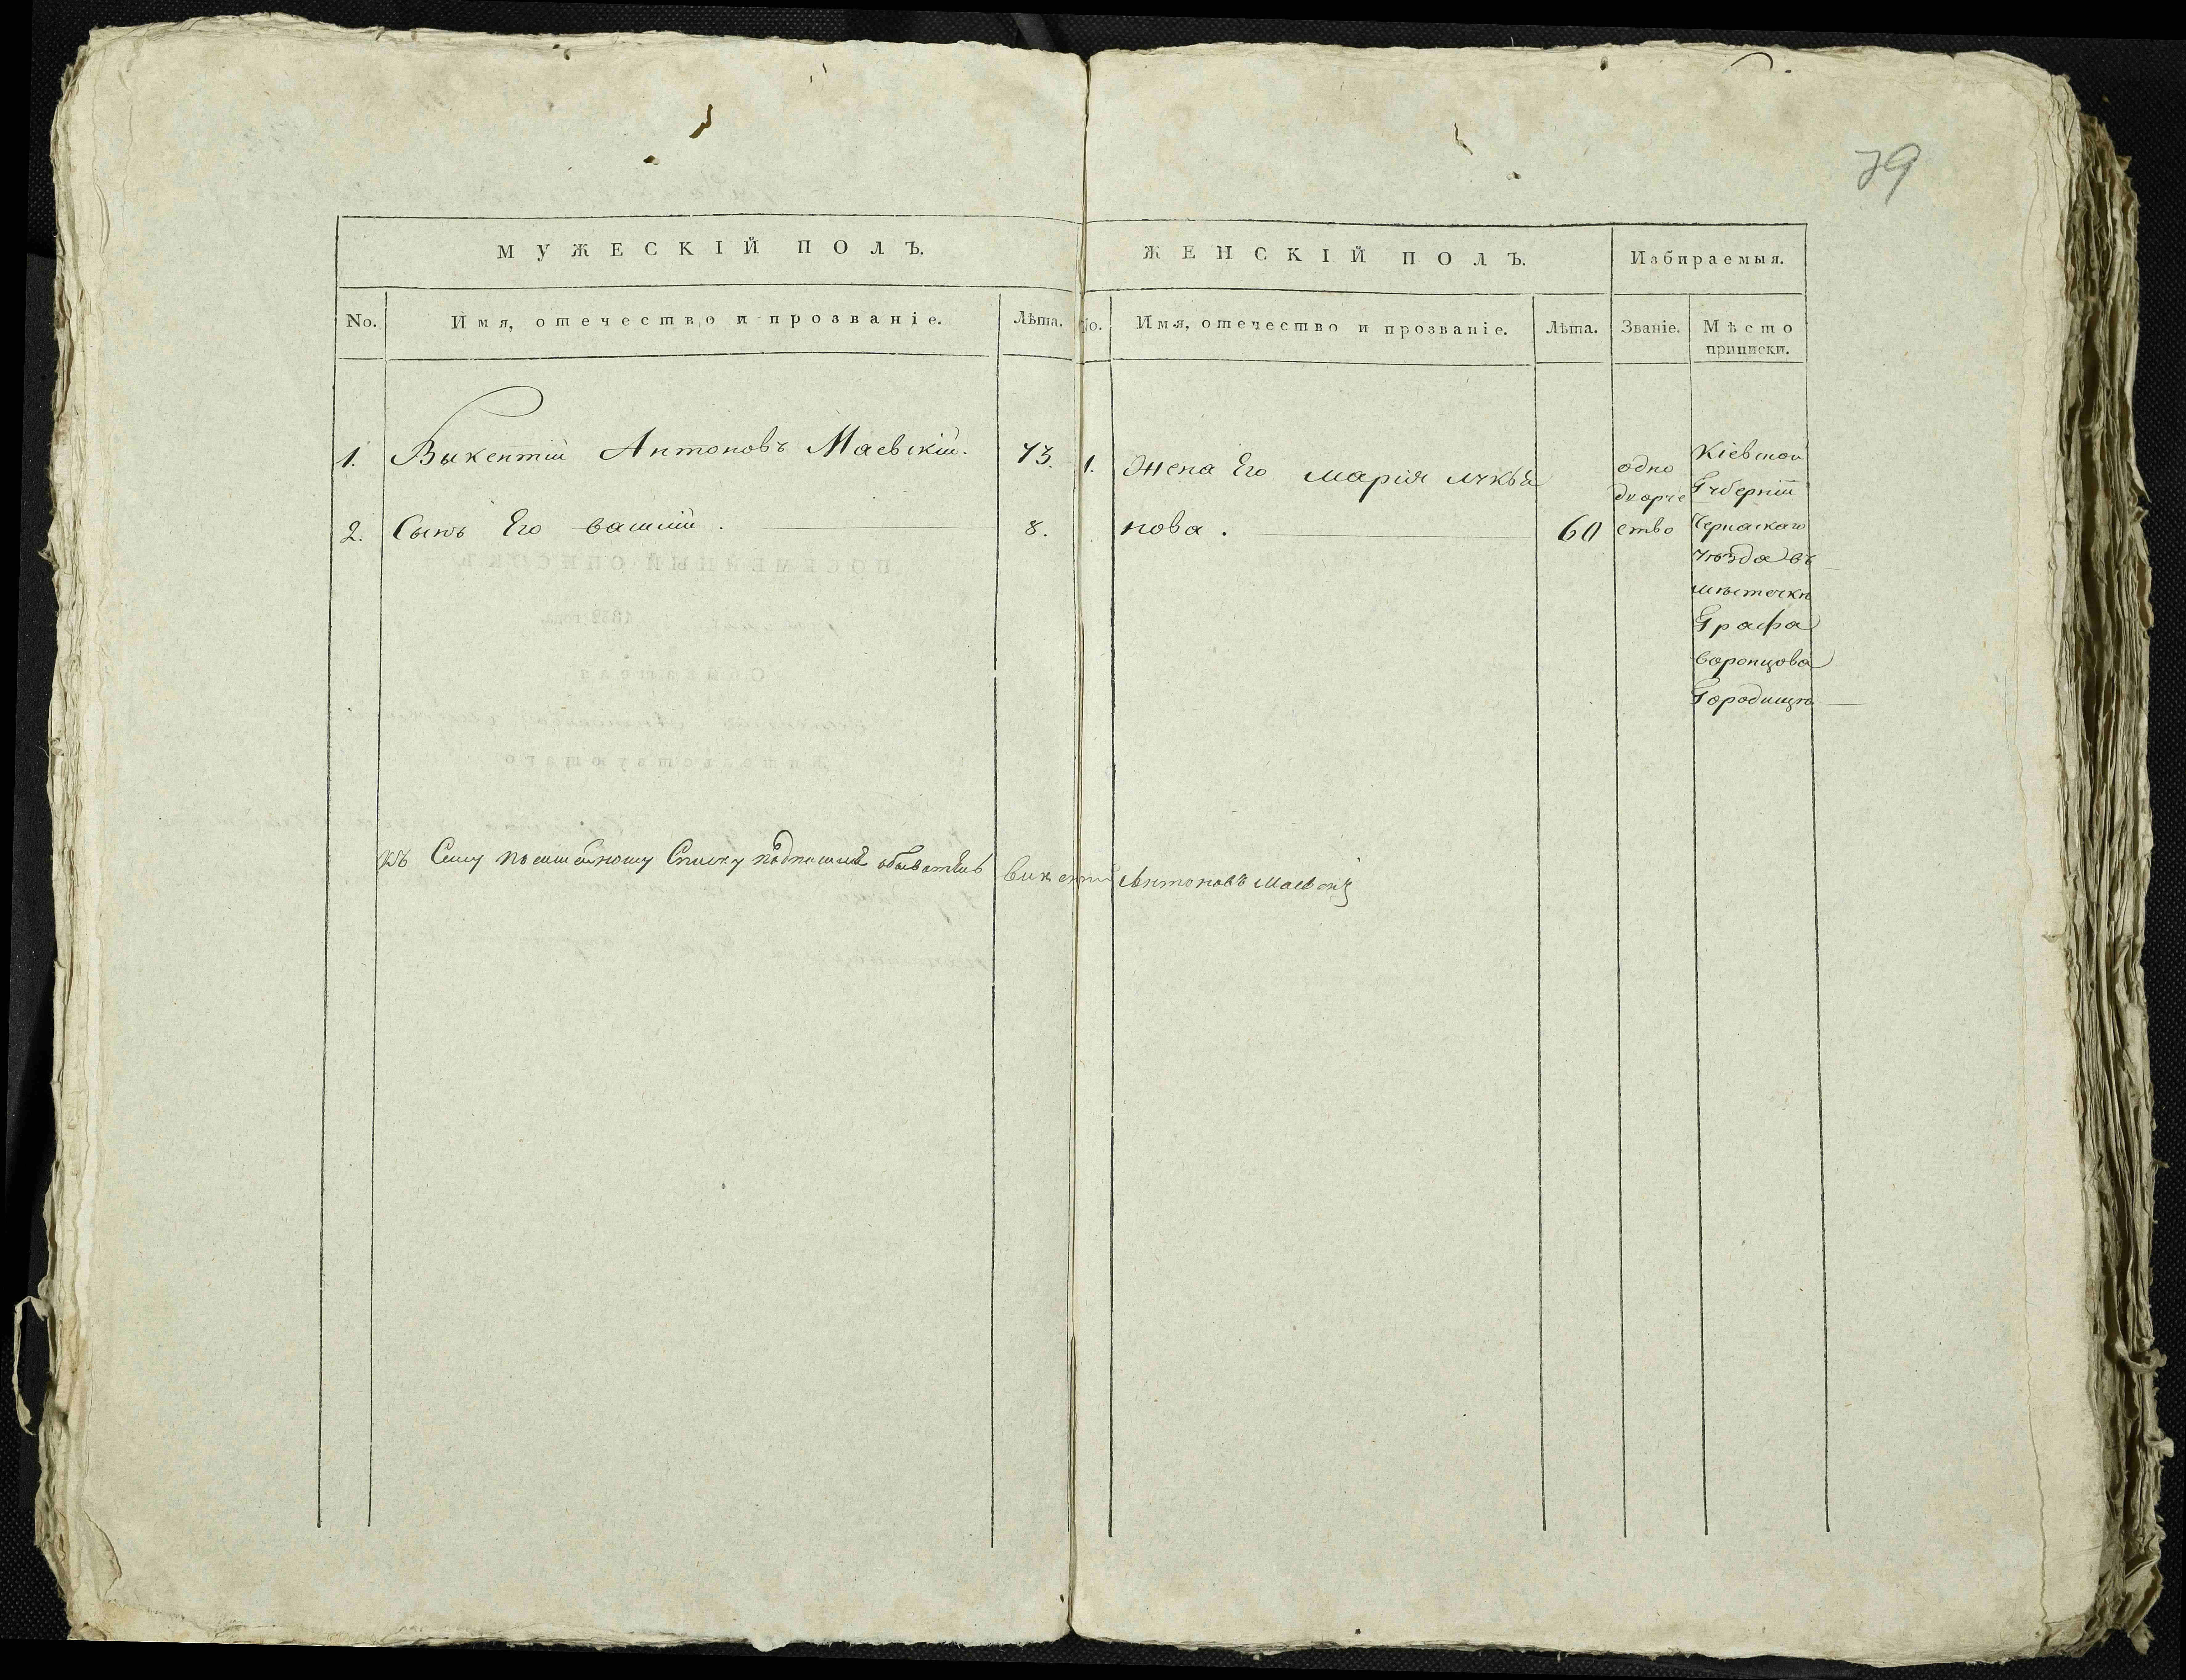 79
МУЖЕСКІЙ ПОЛЪ.
ЖЕНСКІЙ ПОЛЪ.
Избираемыя.
No. Имя, отечество и прозваніе. Лѣта.
No. Имя, отечество и прозваніе. Лѣта. Званіе. Мѣсто
приписки.
1. Викентій Антоновъ Маевскій. 73.
2. Сынъ Его 8.
1. Жена Его Марія Лукья
нова. 60
одно
дворче
ство
Кіевской
Губерніи
Черкаскаго
уѣзда въ
мѣстечкѣ
Графа
Воронцова
Городищѣ
къ Сему посемейному Списку подписался обыватель Викентій Антоновъ Маевскій